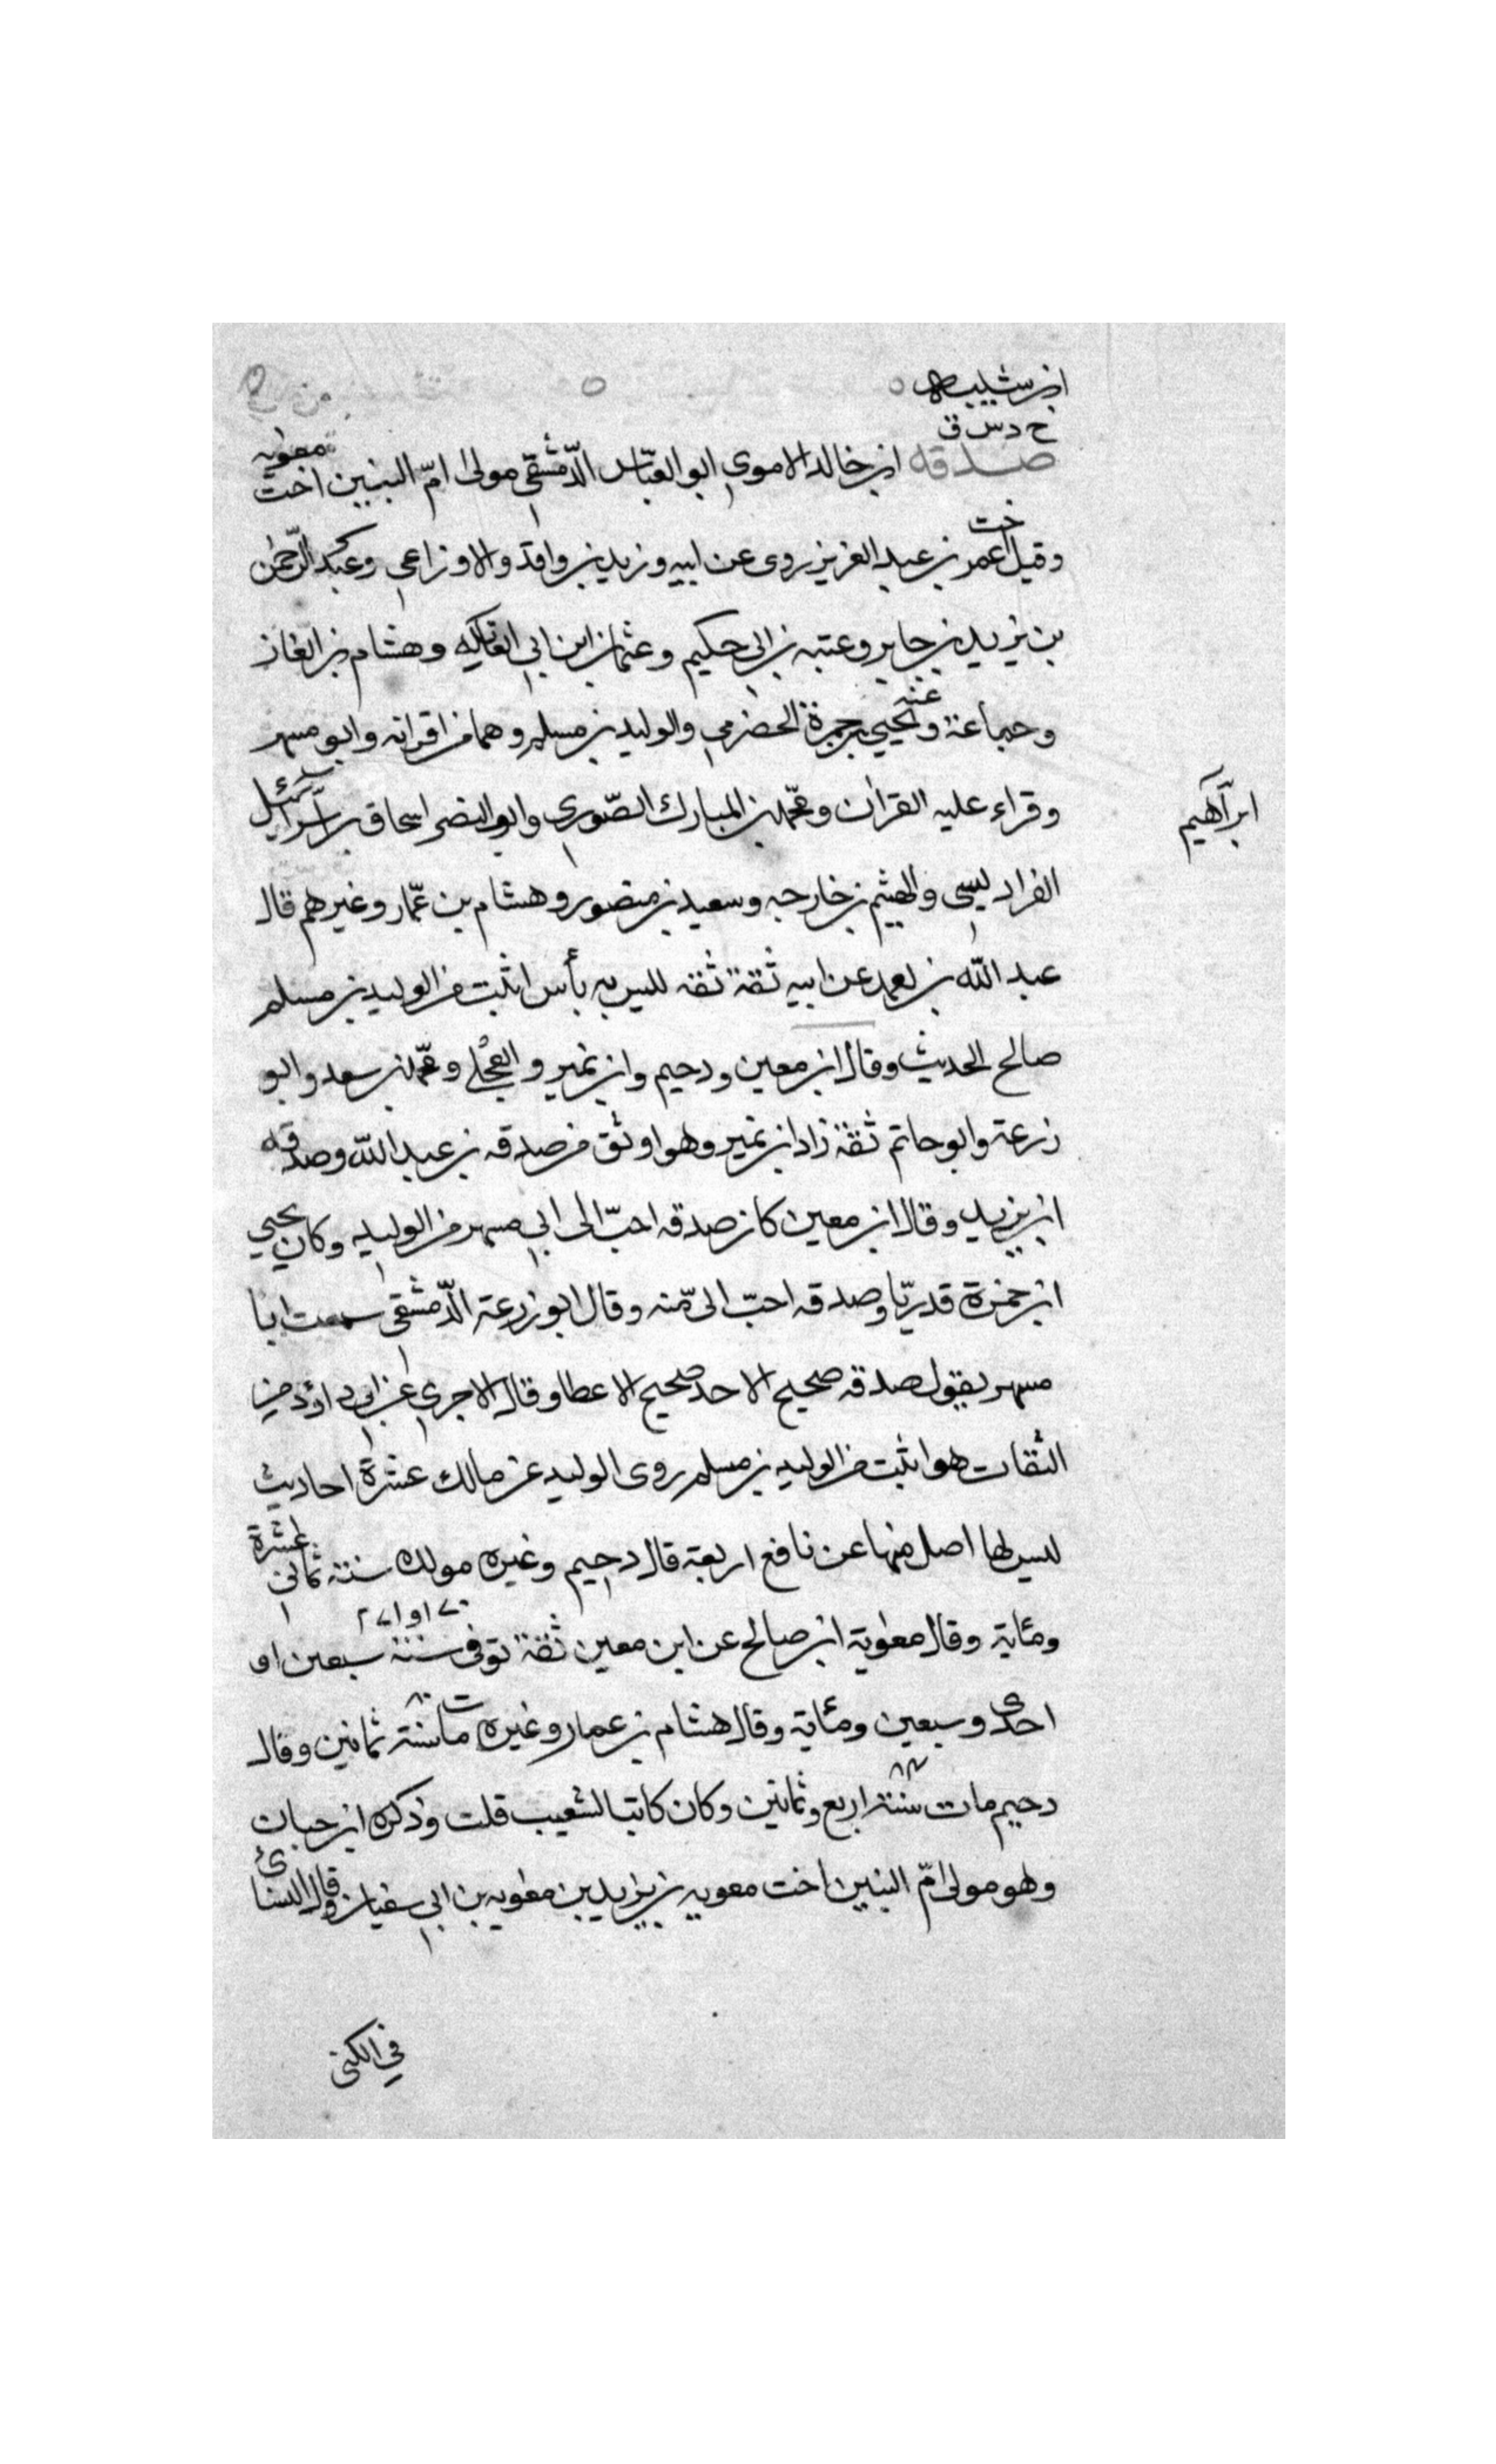 ابن شبيب
خ د س ق
صدقه ابن خالد الاموي ابو العبّاس الدّمشقي مولى امّ البنين اخت معويه
وقيل اخت عمر بن عبد العزيز روى عن ابيه وزيد بن واقد والاوزاعي وعبد الرّحمن
بن يزيد بن جابر وعتبه بن ابي حكيم وعثمان ابن ابي العاتكه وهشام بن الغاز
وجماعة وعنه يحيي بن حمزة الحضرمي والوليد بن مسلم وهما من اقرانه وابو مسهر
وقراء عليه القران ومحّمد بن المبارك الصّوري وابو النضر اسحاق بن
ابرآهيم
الفراديسى والهيثم بن خارجه وسعيد بن منصور وهشام بن عمّار وغيرهم قال
عبد الله بن احمد عن ابيه ثقة ثقه ليس به بأس اثبت من الوليد بن مسلم
صالح الحديث وقال ابن معين ودحيم وابن نمير والعجلي ومحّمد بن سعد وابو
زرعة وابو حاتم ثقة زاد ابن نمير وهو اوثق من صدقه بن عبد الله وصدقه
ابن يزيد وقال ابن معين كان صدقه احبّ الى ابي مسهر من الوليد وكان يحيي
ابن حمزة قدريّا وصدقه احبّ الىّ منه وقال ابو زرعة الدّمشقي سمعت ابا
مسهر يقول صدقه صحيح الاخذ صحيح الاعطا وقال الاجري عن ابي داؤد من
الثقات هو اثبت من الوليد بن مسلم روى الوليد عن مالك عشرة احاديث
ليس لها اصل منها عن نافع اربعة قال دحيم وغيره مولده سنة ثماني عشرة
ومئاية وقال معاوية ابن صالح عن ابن معين ثقة توفى سنة سبعين او
١٧٠ او ١٧١
احدى وسبعين ومئاية وقال هشام بن عمار وغيره مات سنة ثمانين وقال
٨٠
دحيم مات سنة اربع وثمانين وكان كاتبا لشعيب قلت وذكره ابن حبان
٨٤
وهو مولى امّ البنين اخت معويه بن يزيد بن معويه بن ابي سفيان وقال النسائي
في الكنى